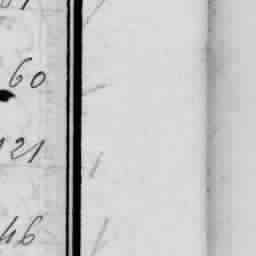 60
121
46